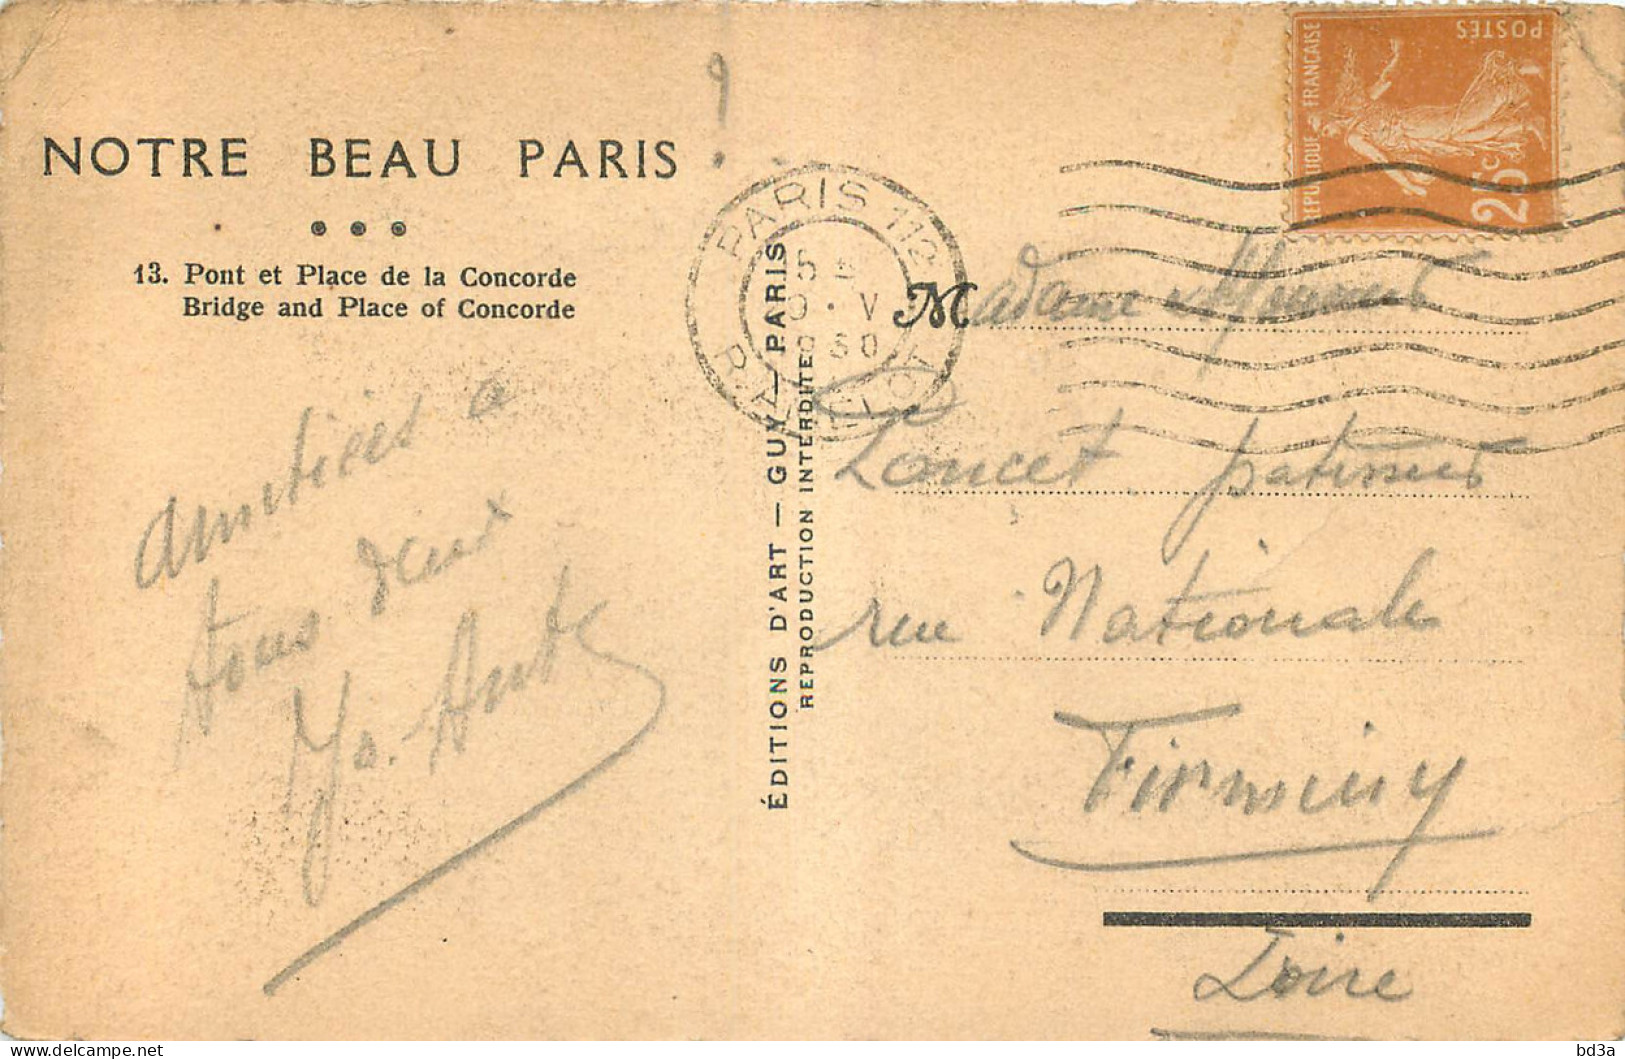 NOTRE BEAU PARIS !
13. Pont et Place de la Concorde
Bridge and Place of Concorde
amitiés a
tous deux
ÉDITIONS D'ART — GUY — PARIS
REPRODUCTION INTERDITE
PARIS 112
REPUBLIQUE FRANÇAISE
POSTES
25c
Madame
Loncet
rue Nationale
Firminy
Loire
bd3a